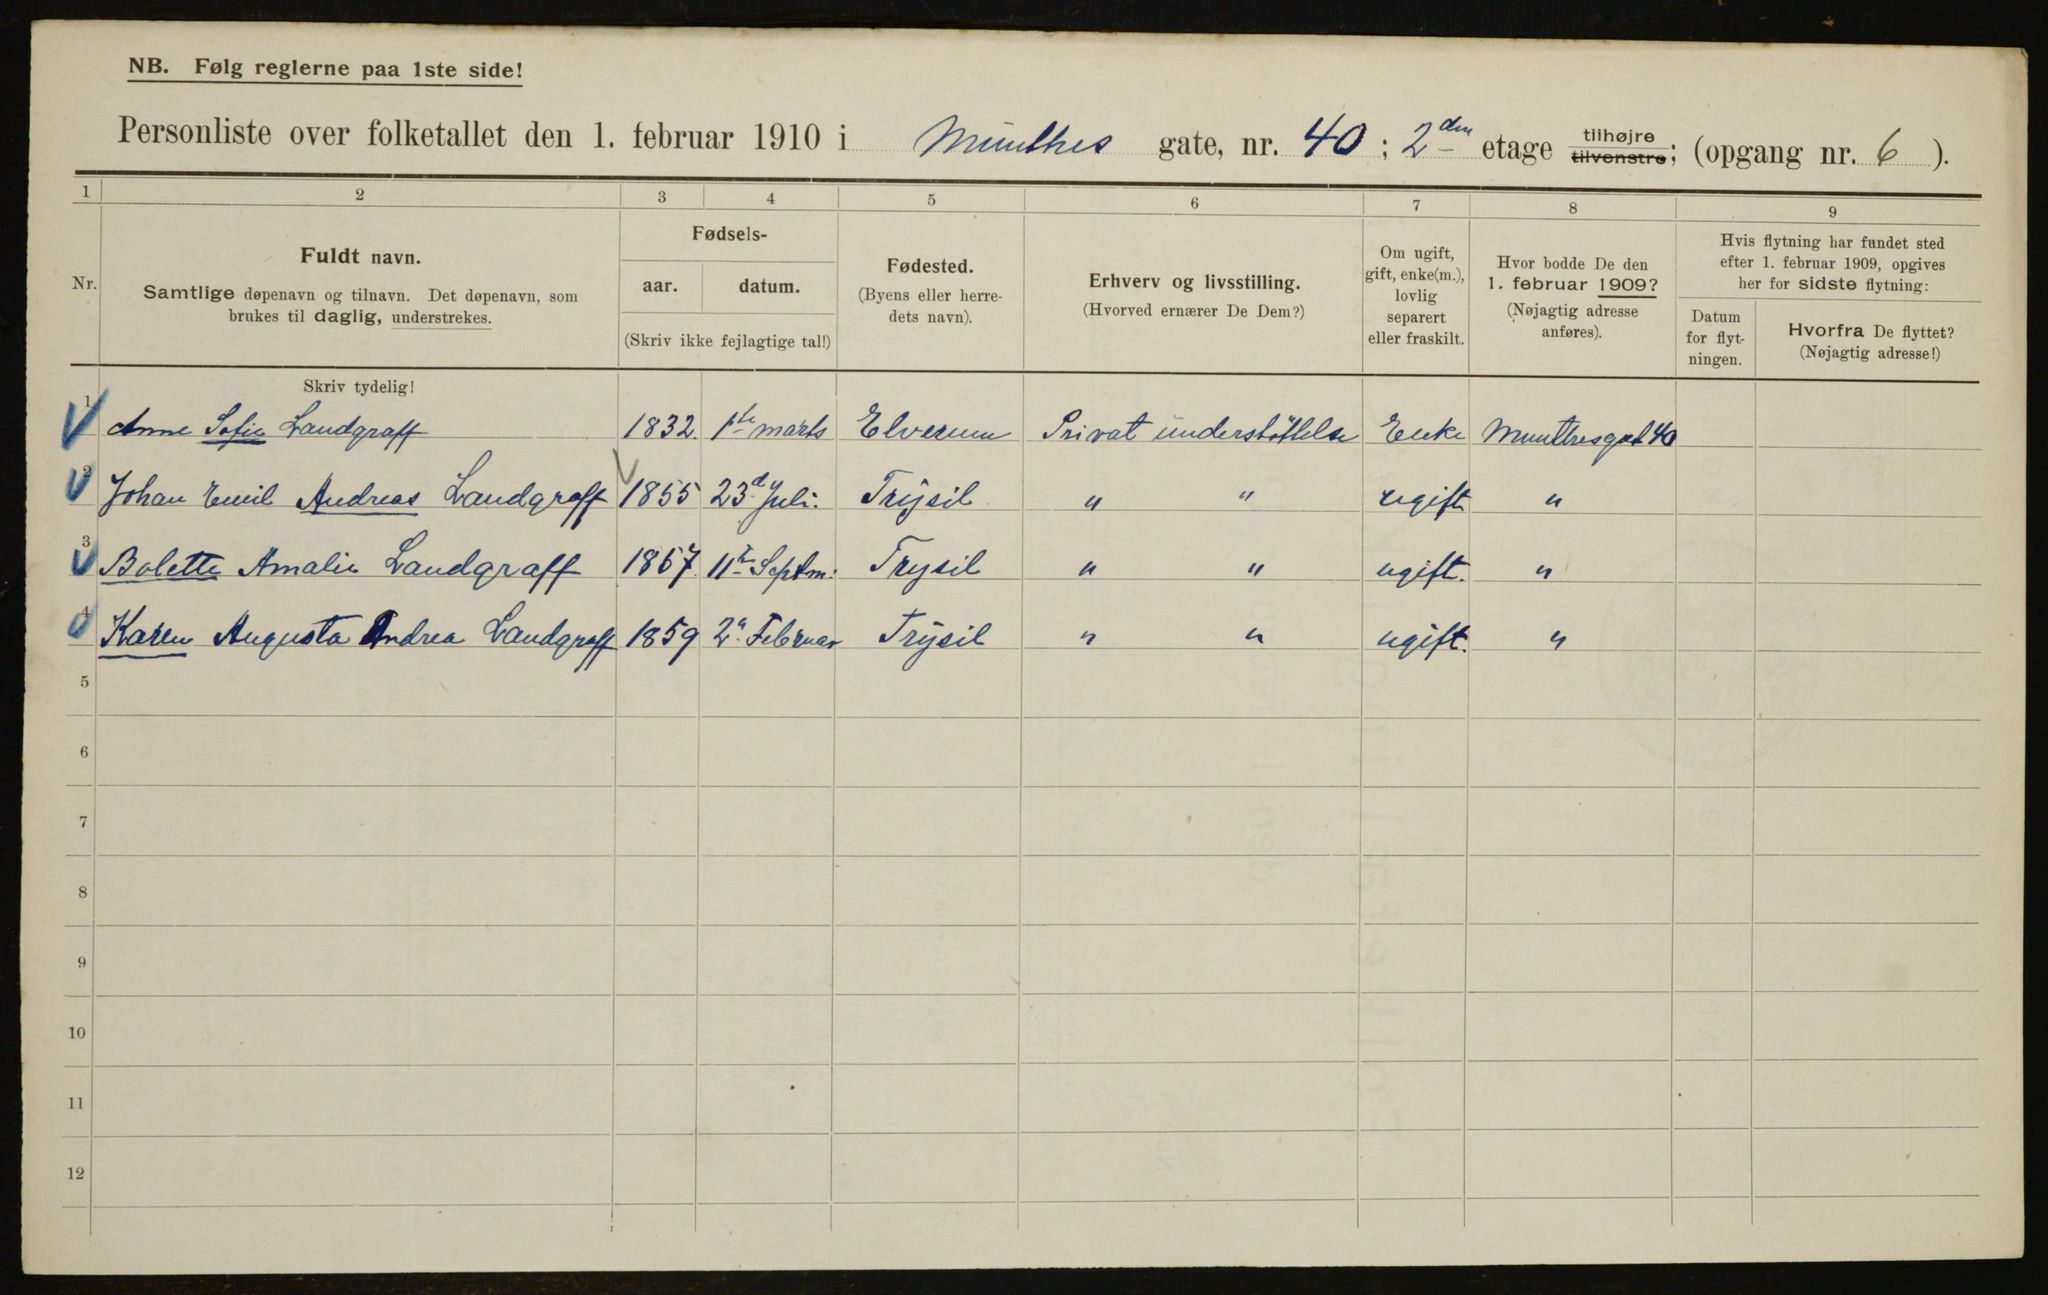 NB. Følg reglerne paa 1ste side!
Personliste over folketallet den 1. februar 1910 i Munthes gate, nr. 40; 2den etage tilhøjre tilvenstre; (opgang nr. 6).
1 2 3 4 5 6 7 8 9
Nr.
Fuldt navn.
Samtlige døpenavn og tilnavn. Det døpenavn, som
brukes til daglig, understrekes.
Fødsels-
aar. datum.
(Skriv ikke fejlagtige tal!)
Fødested.
(Byens eller herre-
dets navn).
Erhverv og livsstilling.
(Hvorved ernærer De Dem?)
Om ugift,
gift, enke(m.),
lovlig
separert
eller fraskilt.
Hvor bodde De den
1. februar 1909?
(Nøjagtig adresse
anføres).
Hvis flytning har fundet sted
efter 1. februar 1909, opgives
her for sidste flytning:
Datum
for flyt-
ningen.
Hvorfra De flyttet?
(Nøjagtig adresse!)
Skriv tydelig!
1 Anne Sofie Landgraff 1832. 1ste marts Elverum Privat understöttelse Enke Munthesgat 40
2 Johan Emil Andreas Landgraff 1855 23d Juli. Trysil " " ugift "
3 Bolette Amalie Landgraff 1867. 11te Septm: Trysil " " ugift. "
4 Karen Augusta Andrea Landgraff 1859 2n Februar Trysil " " ugift. "
5
6
7
8
9
10
11
12